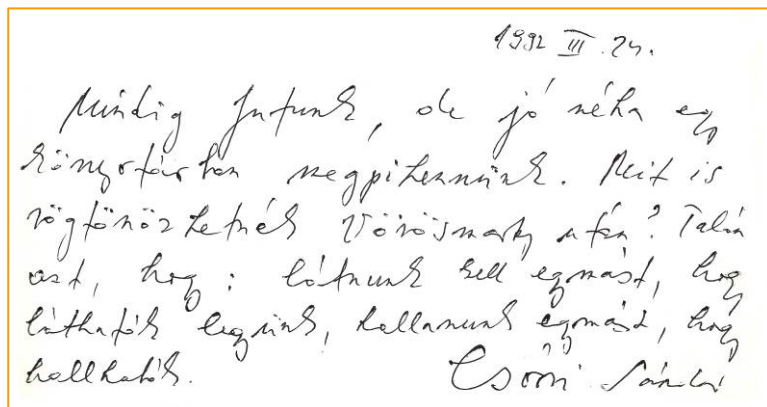 1992 III. 24.
Mindig futunk, de jó néha egy
könyvtárban megpihennünk. Mit is
rögtönözhetnék Vörösmarty után? Talán
azt, hogy: látnunk kell egymást, hogy
láthatók legyünk, hallanunk egymást, hogy
hallhatók. Csoóri Sándor